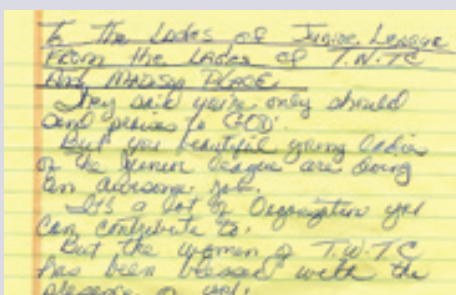 To the Ladies of Junior League
From the Ladies of T.W.T.C
And Madison Place
They said you're only should
send praises to GOD.
But you beautiful young ladies
of the junior league are doing
an awesome job.
It's a lot of Organization you
can contribute to.
But the women of T.W.T.C
has been blessed with the
presence of you!